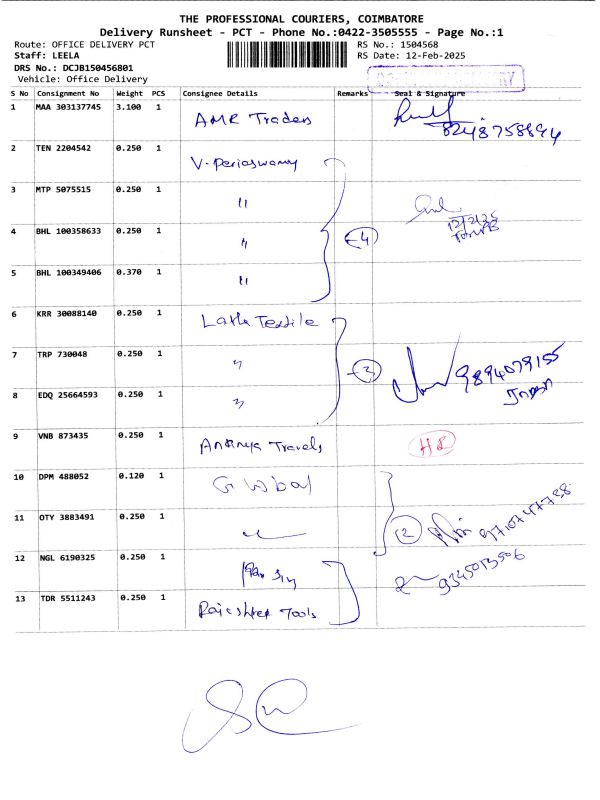 THE PROFESSIONAL COURIERS, COIMBATORE
Delivery Runsheet - PCT - Phone No.:0422-3505555 - Page No.:1
Route: OFFICE DELIVERY PCT
Staff: LEELA
DRS No.: DCJB150456801
Vehicle: Office Delivery
RS No.: 1504568
RS Date: 12-Feb-2025
S No Consignment No Weight PCS Consignee Details Remarks Seal & Signature
1 MAA 303137745 3.100 1 AMR Traders 8248758894
2 TEN 2204542 0.250 1 V. Periaswamy
3 MTP 5075515 0.250 1 " 12/2/25
4 BHL 100358633 0.250 1 " 4
5 BHL 100349406 0.370 1 "
6 KRR 30088140 0.250 1 Latha Textile
7 TRP 730048 0.250 1 " 3 9894079155
8 EDQ 25664593 0.250 1 "
9 VNB 873435 0.250 1 Travels
10 DPM 488052 0.120 1 Global
11 OTY 3883491 0.250 1 2
12 NGL 6190325 0.250 1 9345013506
13 TDR 5511243 0.250 1 Rajeshree Tools